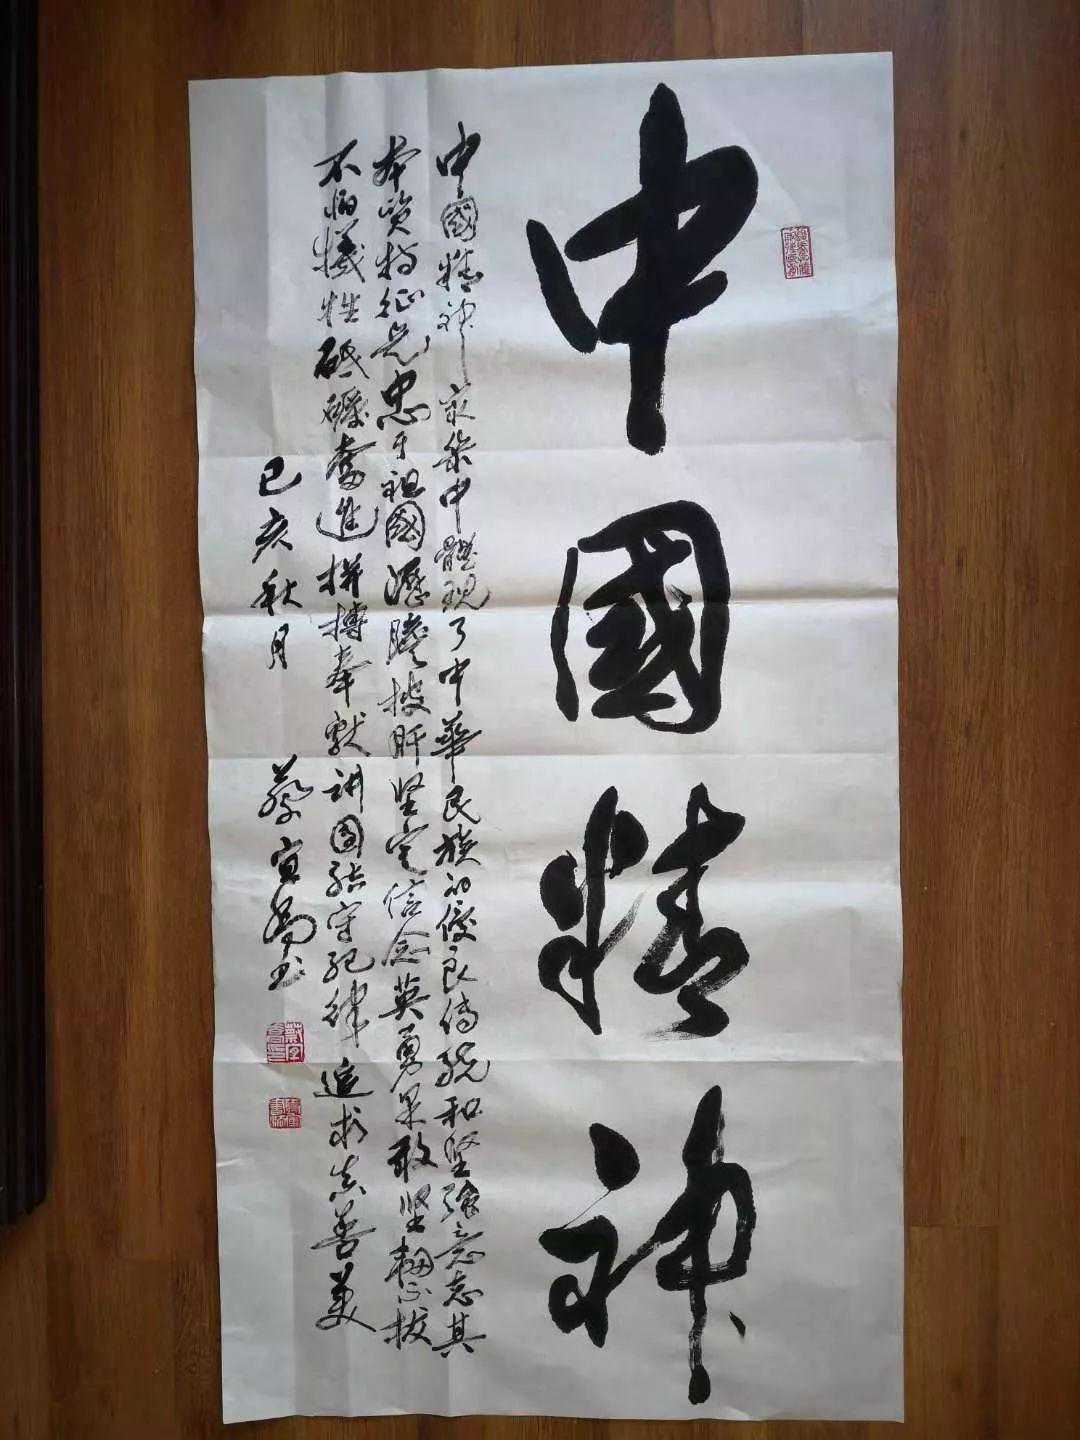 中國精神
中國精神最集中體現了中華民族的優良傳統和坚强意志其
本質特征是忠于祖國瀝膽披肝坚定信念英勇果敢坚韌不拔
不怕犧牲砥礪奮進拼搏奉獻讲团結守紀律追求真善美
己亥秋月 蔡 书